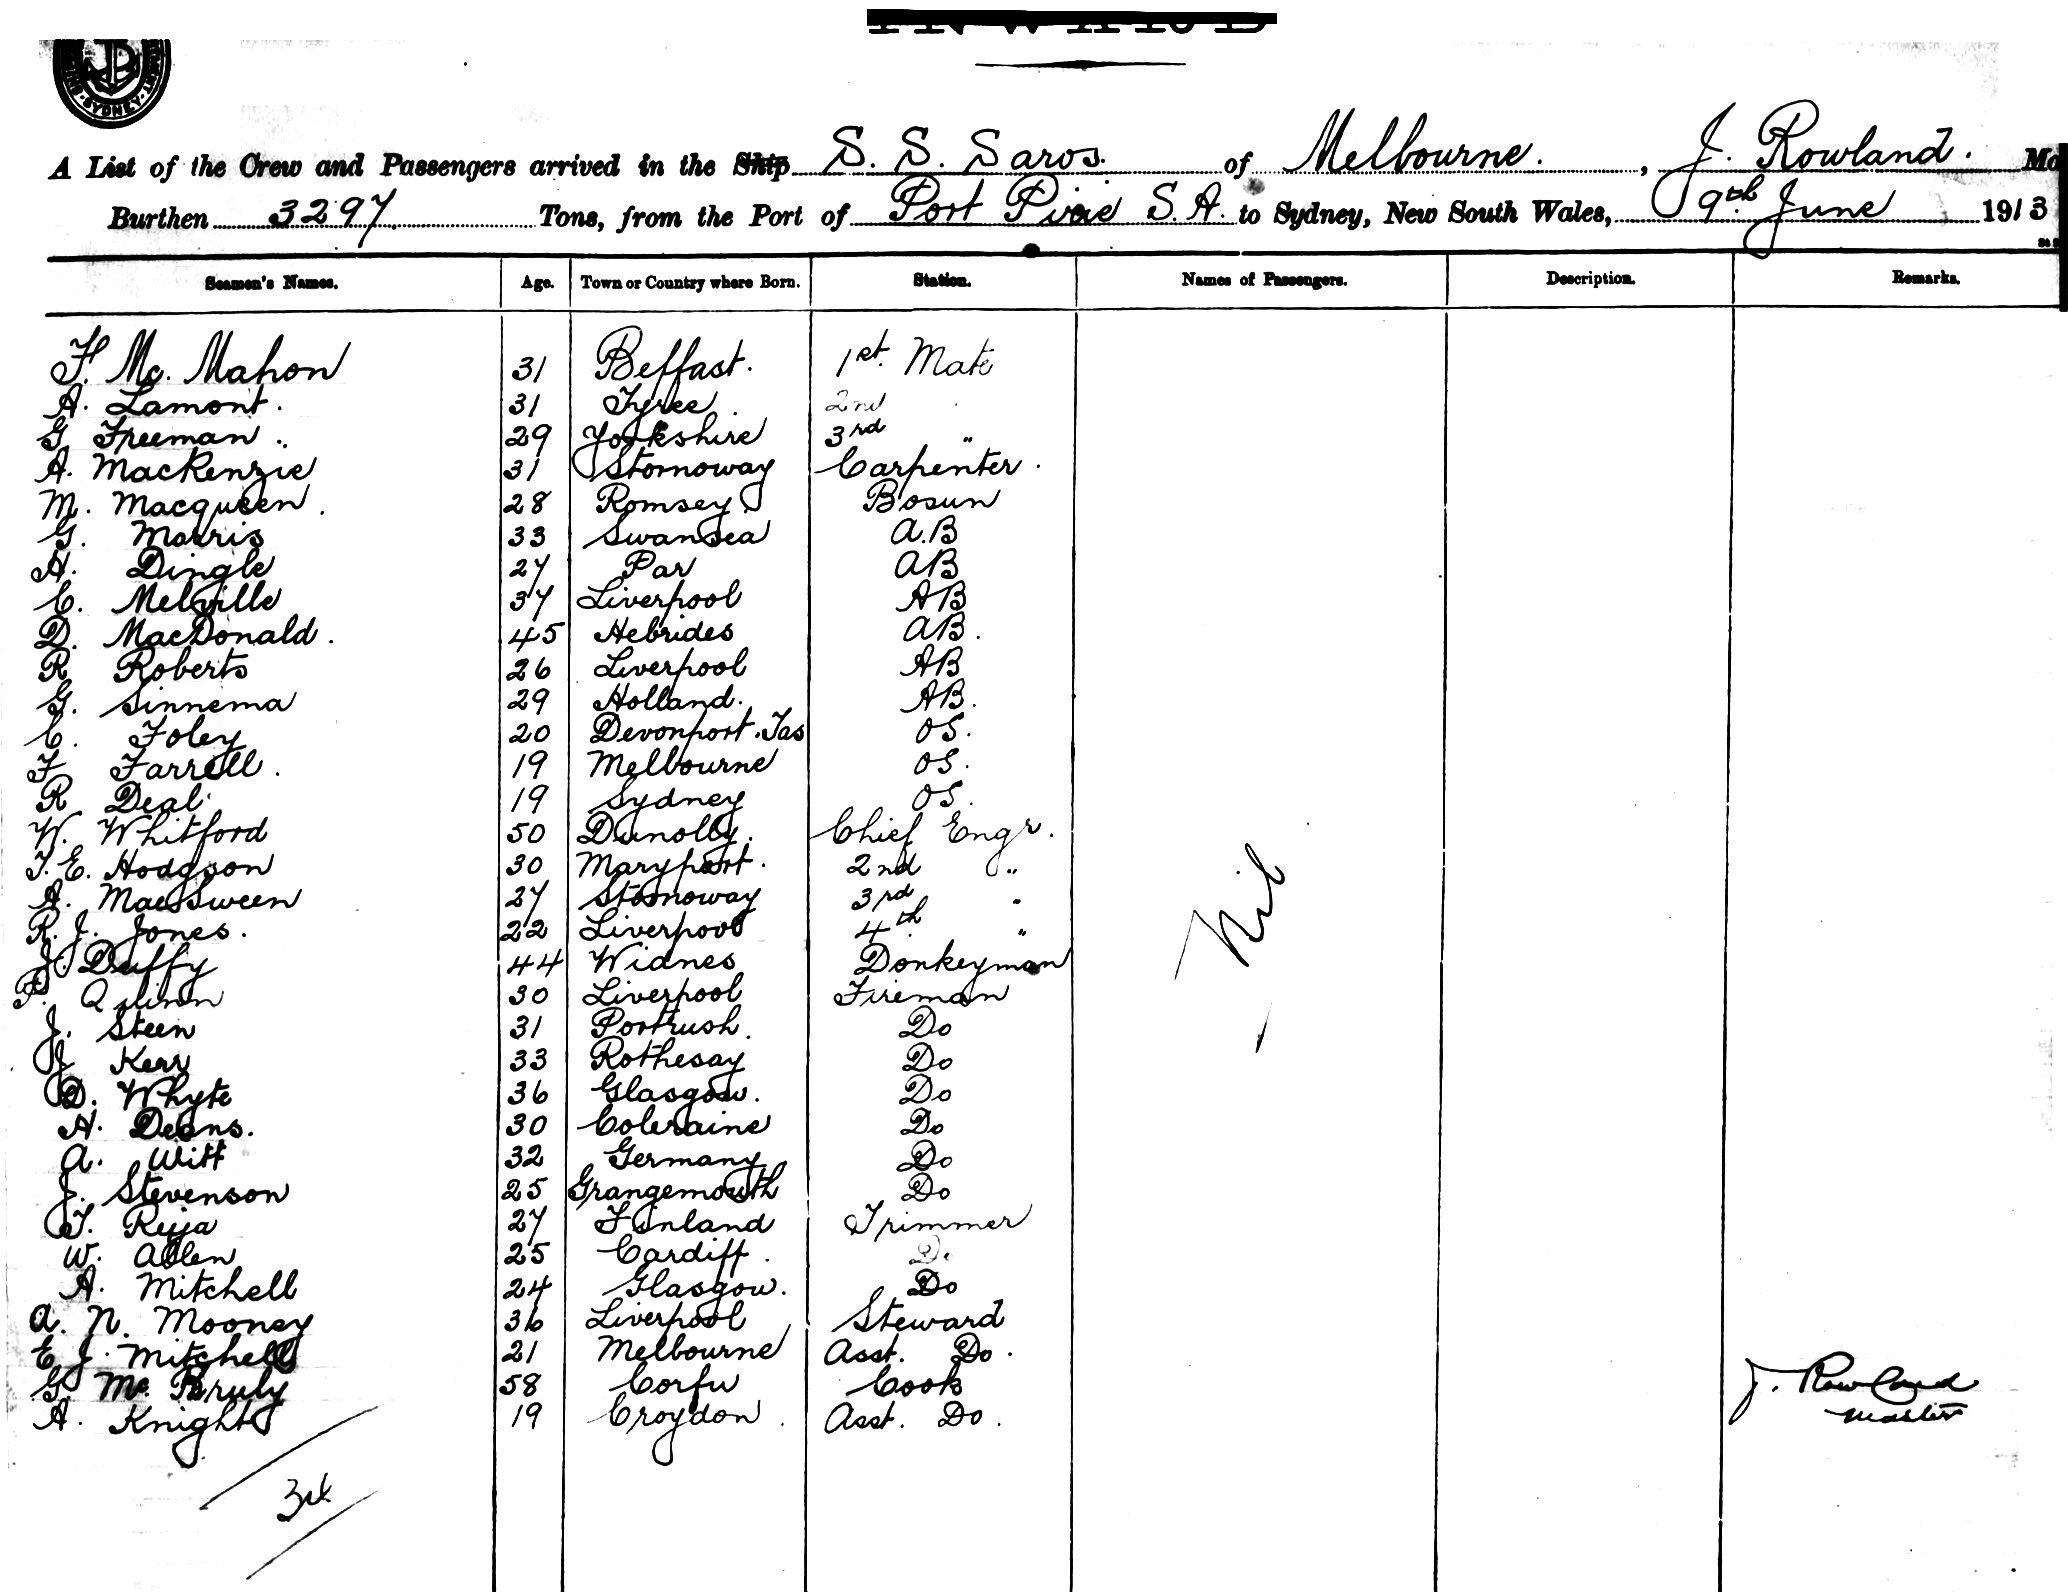 SYDNEY
A List of the Crew and Passengers arrived in the Ship S. S. Saros. of Melbourne. , J. Rowland.
Burthen 3297 Tons, from the Port of Port Pirie S.A. to Sydney, New South Wales, 9th June 1913
Seamen's Names. Age. Town or Country where Born. Station. Names of Passengers. Description. Remarks.
F. Mc. Mahon 31 Belfast. 1st. Mate
A. Lamont. 31 Tyree. 2nd
G Freeman. 29 Yorkshire 3rd "
A. MacKenzie 31 Stornoway Carpenter.
M. Macqueen. 28 Romsey. Bosun
G. Morris 33 Swansea A.B
H. Dingle 27 Par AB
C. Melville 37 Liverpool AB
D. MacDonald. 45 Hebrides AB.
R Roberts 26 Liverpool AB
G. Sinnema 29 Holland. AB.
C. Foley 20 Devonport. Tas OS.
F Farrell. 19 Melbourne OS.
R Deal 19 Sydney OS.
W. Whitford 50 Dunolly. Chief Engr.
T. E. Hodgson 30 Maryport. 2nd "
A. MacSween 27 Stornoway 3rd "
R. J. Jones. 22 Liverpool 4th "
J. Duffy 44 Widnes Donkeyman
P. Quinn 30 Liverpool Fireman
J. Steen 31 Portrush. Do
J Kerr 33 Rothesay Do
D. Whyte 36 Glasgow. Do
H. Deans. 30 Coleraine Do
A. Witt 32 Germany Do
J. Stevenson 25 Grangemouth Do
T. Reija 27 Finland Trimmer
W. Allen 25 Cardiff. Do
A. Mitchell 24 Glasgow. Do
A. N. Mooney 36 Liverpool Steward
E J. Mitchell 21 Melbourne Asst. Do.
G. Mc. 58 Corfu Cook
A. Knight 19 Croydon. Asst. Do.
Nil
J. Rowland
Master